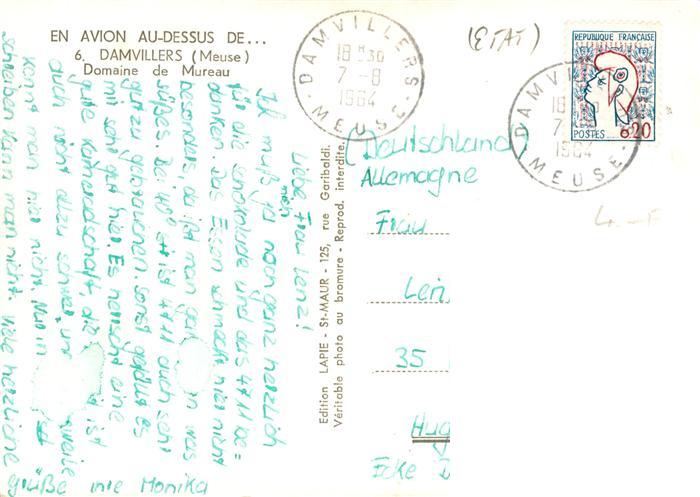 EN AVION AU-DESSUS DE...
6. DAMVILLERS (Meuse)
Domaine de Mureau
DAMVILLERS
18 H 30
7 - 8
1964
MEUSE
(ETAT)
REPUBLIQUE FRANÇAISE
POSTES 0,20
DAMVILLERS
18
7
1964
MEUSE
4.-F
Edition LAPIE - St-MAUR - 125, rue Garibaldi.
Véritable photo au bromure - Reprod. interdite.
(Deutschland)
Allemagne
Frau
Len
35
Hug
Ecke
Liebe Frau Lenz!
Ich muß ja noch ganz herzlich
für die Schokolade und das 4711 be=
danken. Das Essen schmeckt hier nicht
besonders, da ißt man gern was
süßes. Bei 40° ist 4711 auch sehr
gut zu gebrauchen. Sonst gefällt es
mir sehr gut hier. Es herrscht eine
gute Kameradschaft, die ist
auch nicht allzu schwer, und
kennt man hier nicht. Nur
schreiben kann man nicht. Viele herzliche
Grüße Ihre Monika